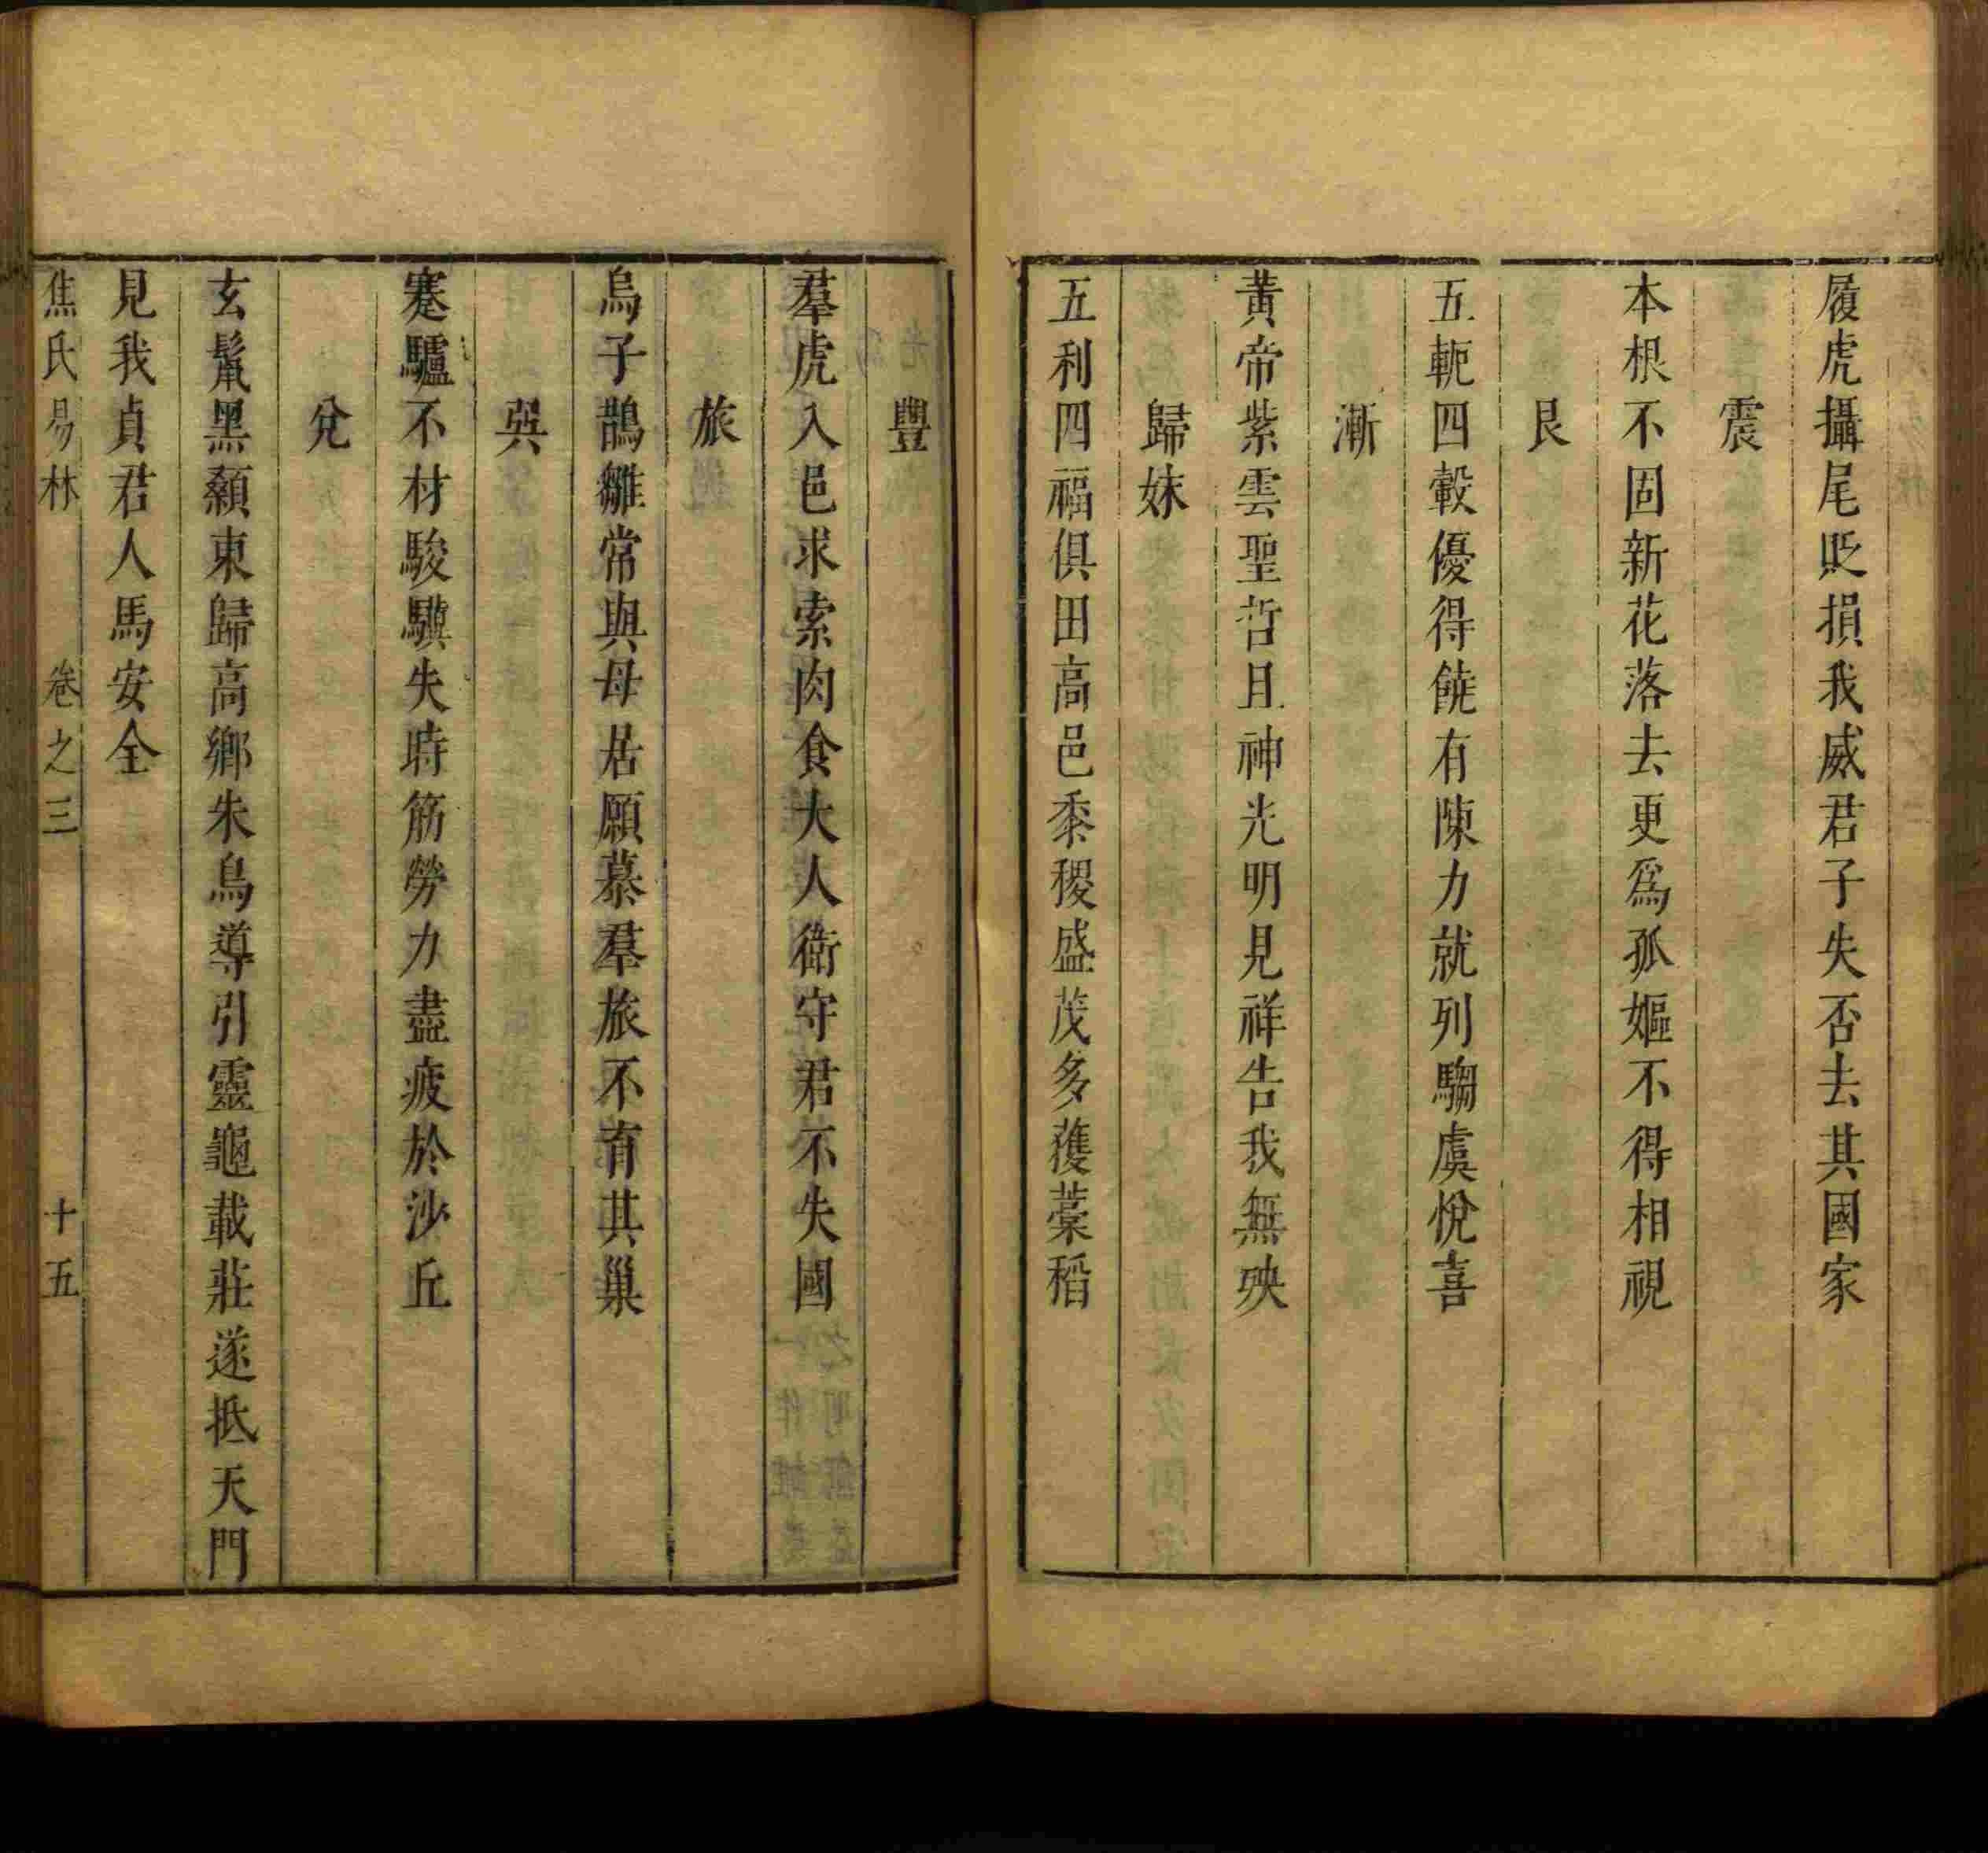 履虎攝尾貶損我威君子失否去其國家
震
本根不固新花落去更爲孤嫗不得相視
艮
五軛四轂優得饒有陳力就列騶虞悅喜
漸
黃帝紫雲聖哲且神光明見祥告我無殃
歸妹
五利四福俱田高邑黍稷盛茂多獲藁稻
豐
羣虎入邑求索肉食大人衛守君不失國
旅
烏子鵲雛常與母居願慕羣旅不有其巢
巽
蹇驢不材駿驥失時筋勞力盡疲於沙丘
兌
玄鬣黑顙東歸高鄉朱鳥導引靈龜載莊遂抵天門
見我貞君人馬安全
焦氏易林 卷之三 十五